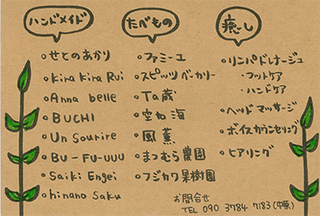 ハンドメイド
せとのあかり
Kira Kira Rui
Anna belle
BUCHI
Un Sourire
BU-FU-UUU
Saiki Engei
hinano Saku
たべもの
ファミーユ
スピッツベーカリー
Ta歳
空ね海
風薫
まつむら農園
フジカワ果樹園
癒し
リンパドレナージュ
フットケア
ハンドケア
ヘッドマッサージ
ボイスカウンセリング
ヒアリング
お問合せ
TEL 090 3784 7183 (中原)